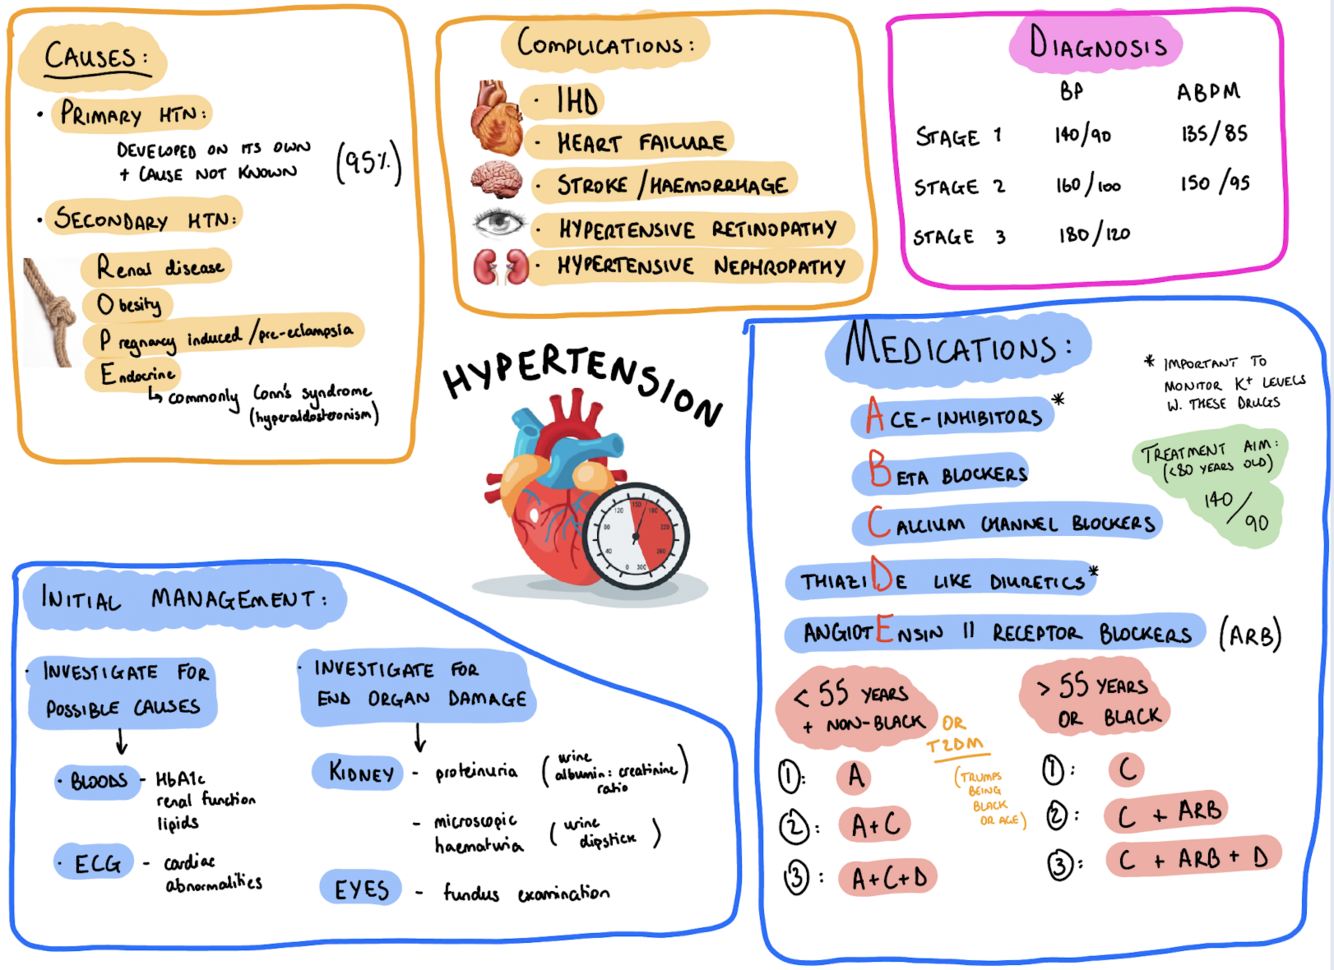 CAUSES:
• PRIMARY HTN:
DEVELOPED ON ITS OWN
+ CAUSE NOT KNOWN
(95%)
• SECONDARY HTN:
Renal disease
Obesity
Pregnancy induced/pre-eclampsia
Endocrine
↳ commonly Conn's syndrome
(hyperaldosteronism)
COMPLICATIONS:
• IHD
• HEART FAILURE
• STROKE/HAEMORRHAGE
• HYPERTENSIVE RETINOPATHY
• HYPERTENSIVE NEPHROPATHY
DIAGNOSIS
BP ABPM
STAGE 1 140/90 135/85
STAGE 2 160/100 150/95
STAGE 3 180/120
HYPERTENSION
0 40 80 120 150 180 220 260 300
MEDICATIONS:
* IMPORTANT TO
MONITOR K+ LEVELS
W. THESE DRUGS
ACE-INHIBITORS*
BETA BLOCKERS
CALCIUM CHANNEL BLOCKERS
THIAZIDE LIKE DIURETICS*
ANGIOTENSIN II RECEPTOR BLOCKERS (ARB)
TREATMENT AIM:
(<80 YEARS OLD)
140/90
< 55 YEARS
+ NON-BLACK
OR
T2DM
(TRUMPS
BEING
BLACK
OR AGE)
①: A
②: A+C
③: A+C+D
> 55 YEARS
OR BLACK
①: C
②: C + ARB
③: C + ARB + D
INITIAL MANAGEMENT:
• INVESTIGATE FOR
POSSIBLE CAUSES
• BLOODS - HbA1c
renal function
lipids
• ECG - cardiac
abnormalities
• INVESTIGATE FOR
END ORGAN DAMAGE
KIDNEY - proteinuria (urine
albumin:creatinine
ratio)
- microscopic
haematuria (urine
dipstick)
EYES - fundus examination